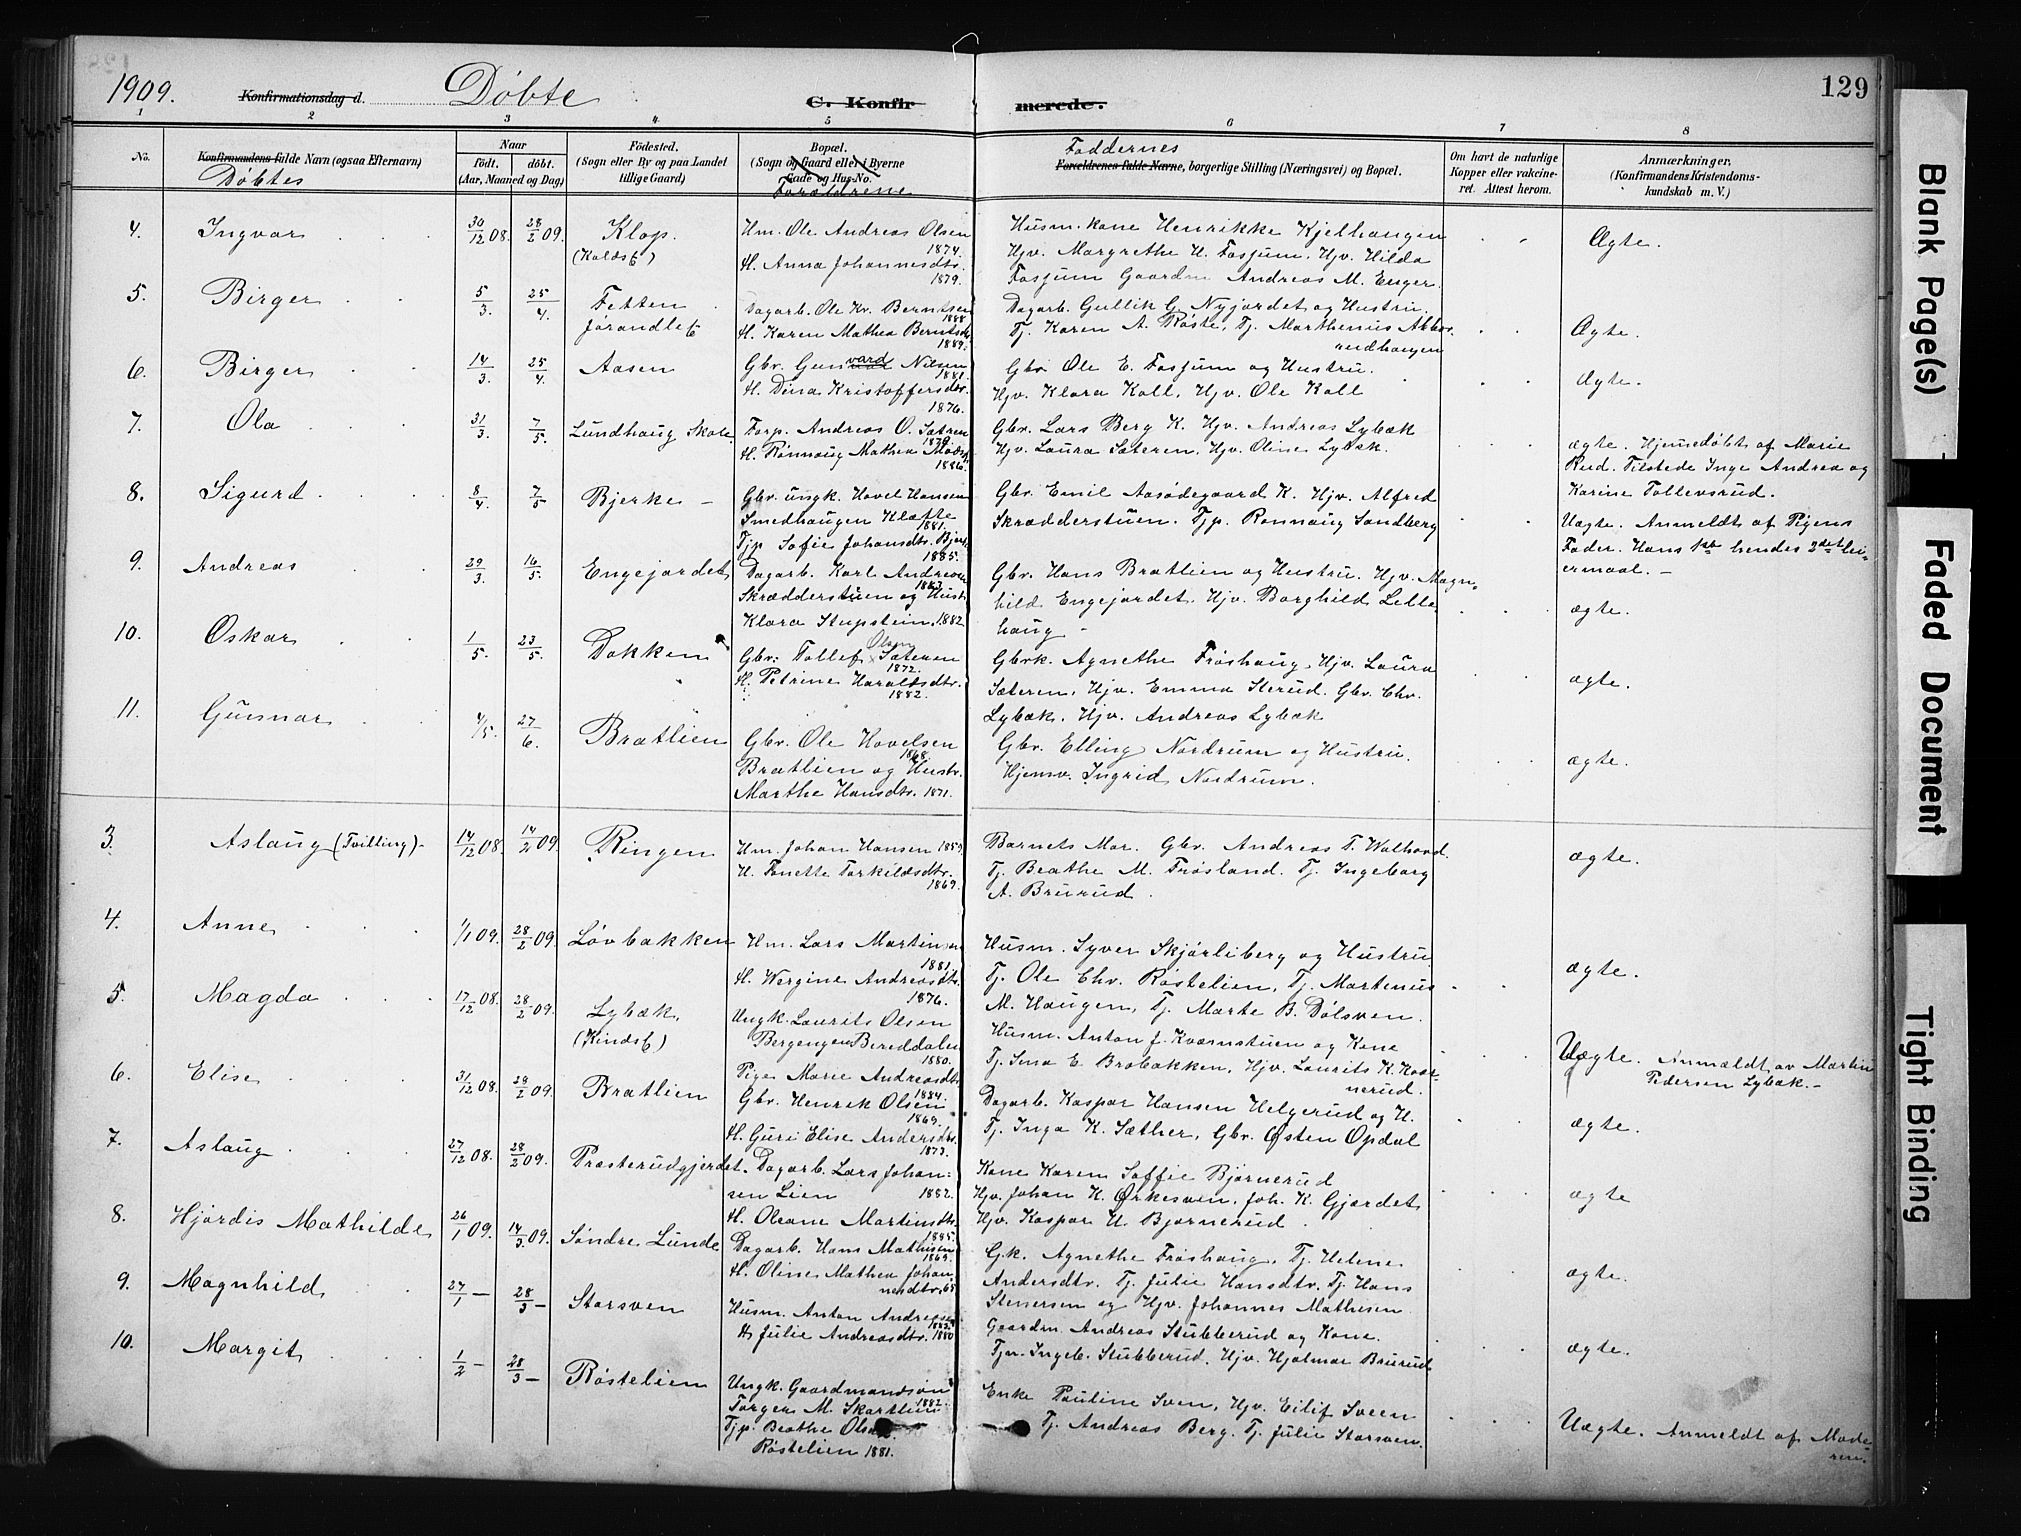 1909.
Konfirmationsdag d. Døbte C. Konfir merede. 129
1 2 3 4 5 6 7 8
No. Konfirmandens fulde Navn (ogsaa Efternavn) Døbtes
Naar født. døbt. (Aar, Maaned og Dag)
Fødested. (Sogn eller By og paa Landet tillige Gaard)
Bopæl. (Sogn og Gaard eller i Byerne Gade og Hus-No. Forældrene
Faddernes Forældrenes fulde Navne, borgerlige Stilling (Næringsvei) og Bopæl.
Om havt de naturlige Kopper eller vakcineret. Attest herom.
Anmærkninger, (Konfirmandens Kristendomskundskab m. V.)
4. Ingvar 30/12 08. 28/2 09. Klop.
Hm. Ole Andreas Olsen 1874.
H. Anna Johannesdtr. 1879.
Husm. kone Henrikke Kjelhaugen
Hjv. Margrethe H. Fosjum. Hjv. Hilda
Fosjum Gaardm Andreas M. Enger.
Ægte.
5. Birger 5/3. 25/4. Fetten
Dagarb. Ole Kr. Berntsen 1888
H. Karen Mathea Berntsdtr. 1889.
Dagarb. Gullik G. Nyjordet og Hustru.
Tj. Karen A. Røste, Tj. Marthenius
Ægte.
6. Birger 14/3. 25/4. Aasen
Gbr. Gunvard Nilsen 1881.
H. Dina Kristoffersdtr. 1876.
Gbr. Ole E. Fosjum og Hustru.
Hjv. Klara Koll, Hjv. Ole Koll
Ægte.
7. Ola 31/3. 7/5. Lundhaug Skole.
Forp. Andreas O. Sætren 1879.
H. Rønnaug Mathea 1886.
Gbr. Lars Berg K. Hjv. Andreas Lybæk
Hjv. Laura Sæteren, Hjv. Oline Lybæk.
ægte. Hjemmedøbt af Marie
Rud. Tilstede Inge Andrea og
Karine Tollevsrud.
8. Sigurd 8/4. 7/5 Bjerke
Gbr. ungk. Hovel Hansen
Smedhaugen Klætte 1881.
Tjp Sofie Johansdtr. 1885.
Gbr. Emil Aasødegaard K. Hjv. Alfred
Skrædderstuen. Tjp. Rønnaug Sandberg
Uægte. Anmeldt af Pigens
Fader. Hans 1ste hendes 2det lei-
ermaal.
9. Andreas 29/3. 16/5. Engejordet
Dagarb. Karl Andresen
Skrædderstuen og Hust.
Klara Stupstein. 1882
Gbr. Hans Bratlien og Hustru. Hjv. Magn-
hild Engejordet. Hjv. Borghild Lille-
haug
ægte.
10. Oskar 1/5. 23/5. Dokken
Gbr. Tollef Olsen Sæteren 1872.
H. Petrine Haraldsdtr. 1882.
Gbrk. Agnethe Frøshaug, Hjv. Laura
Sæteren, Hjv. Emma Sterud. Gbr. Chr.
Lybæk. Hjv. Andreas Lybæk
ægte.
11. Gunnar 4/5. 27/6. Bratlien
Gbr. Ole Hovelsen 1868.
Bratlien og Hustr.
Marthe Hansdtr. 1871.
Gbr. Elling Nordrum og Hustru.
Hjemv. Ingrid Nordrum.
ægte.
3. Aslaug (Tvilling) 14/12 08. 14/2 09. Ringen
Hm. Johan Hansen
H. Tonette Torkildsdtr. 1869.
Barnets Mor. Gbr. Andreas T. Walhovd.
Tj. Beathe M. Frøsland. Tj. Ingeborg
A. Brurud.
ægte.
4. Anne 1/1 09. 28/2 09. Løvbakken
Hm. Lars Martinsen 1881.
H. Wergine Andreasdtr. 1876.
Husm. Syver Skjørliberg og Hustru
Tj. Ole Chr. Røstelien, Tj. Martenius
M. Haugen, Tj. Marte B. Dølsven.
ægte.
5. Magda 17/12 08. 28/2 09. Lybæk.
Ungk. Laurits Olsen
Bergengen 1880.
Pige Marie Andreasdtr. 1884.
Husm. Anton J. Kværnstuen og Kone
Tj. Ina E. Brobakken, Hjv. Laurits K. Kvær-
nerud.
Uægte. Anmældt av Martin
Pedersen Lybæk.
6. Elise 31/12 08. 28/2 09. Bratlien
Gbr. Henrik Olsen 1869.
H. Guri Elise Andersdtr. 1873.
Dagarb. Kaspar Hansen Helgerud og H.
Tj. Inga K. Sæther, Gbr. Østen Opdal
ægte.
7. Aslaug 27/12 08. 28/2 09. Præsterudgjerdet.
Dagarb. Lars Johan-
sen Lien 1882.
H. Oleane Martinsdtr. 1885.
Kone Karen Soffie Bjørnerud
Hjv. Johan K. Ørkesven, Joh. K. Gjærdet
Hjv. Kaspar H. Bjørnerud.
ægte
8. Hjørdis Mathilde 26/1 09. 14/3. 09. Søndre Lunde
Dagarb. Hans Mathisen
H. Oline Mathea Johan
nesdtr.
G.k. Agnethe Frøshaug, Tj. Helene
Andersdtr. Tj. Julie Hansdtr. Tj. Hans
Stenersen og Hjv. Johannes Mathisen
ægte.
9. Magnhild 27/1 - 28/3 - Storsven
Husm. Anton Andreasen 1882.
H. Julie Andreasdtr. 1880
Gaardm. Andreas Stubberud og Kone.
Tjn. Ingeb. Stubberud, Hjv. Hjalmar Brurud
ægte.
10. Margit 1/2 - 28/3 - Røstelien
Ungk. Gaardmandsøn
Torger M. Skartlien 1882.
Tjp. Beathe Olsdtr.
Røstelien 1881.
Enke Pauline Sven, Hjv. Eilif Sveen
Tj. Andreas Berg. Tj. Julie Storsven.
Uægte. Anmeldt af Mode-
ren.
Blank Page(s)
Faded Document
Tight Binding